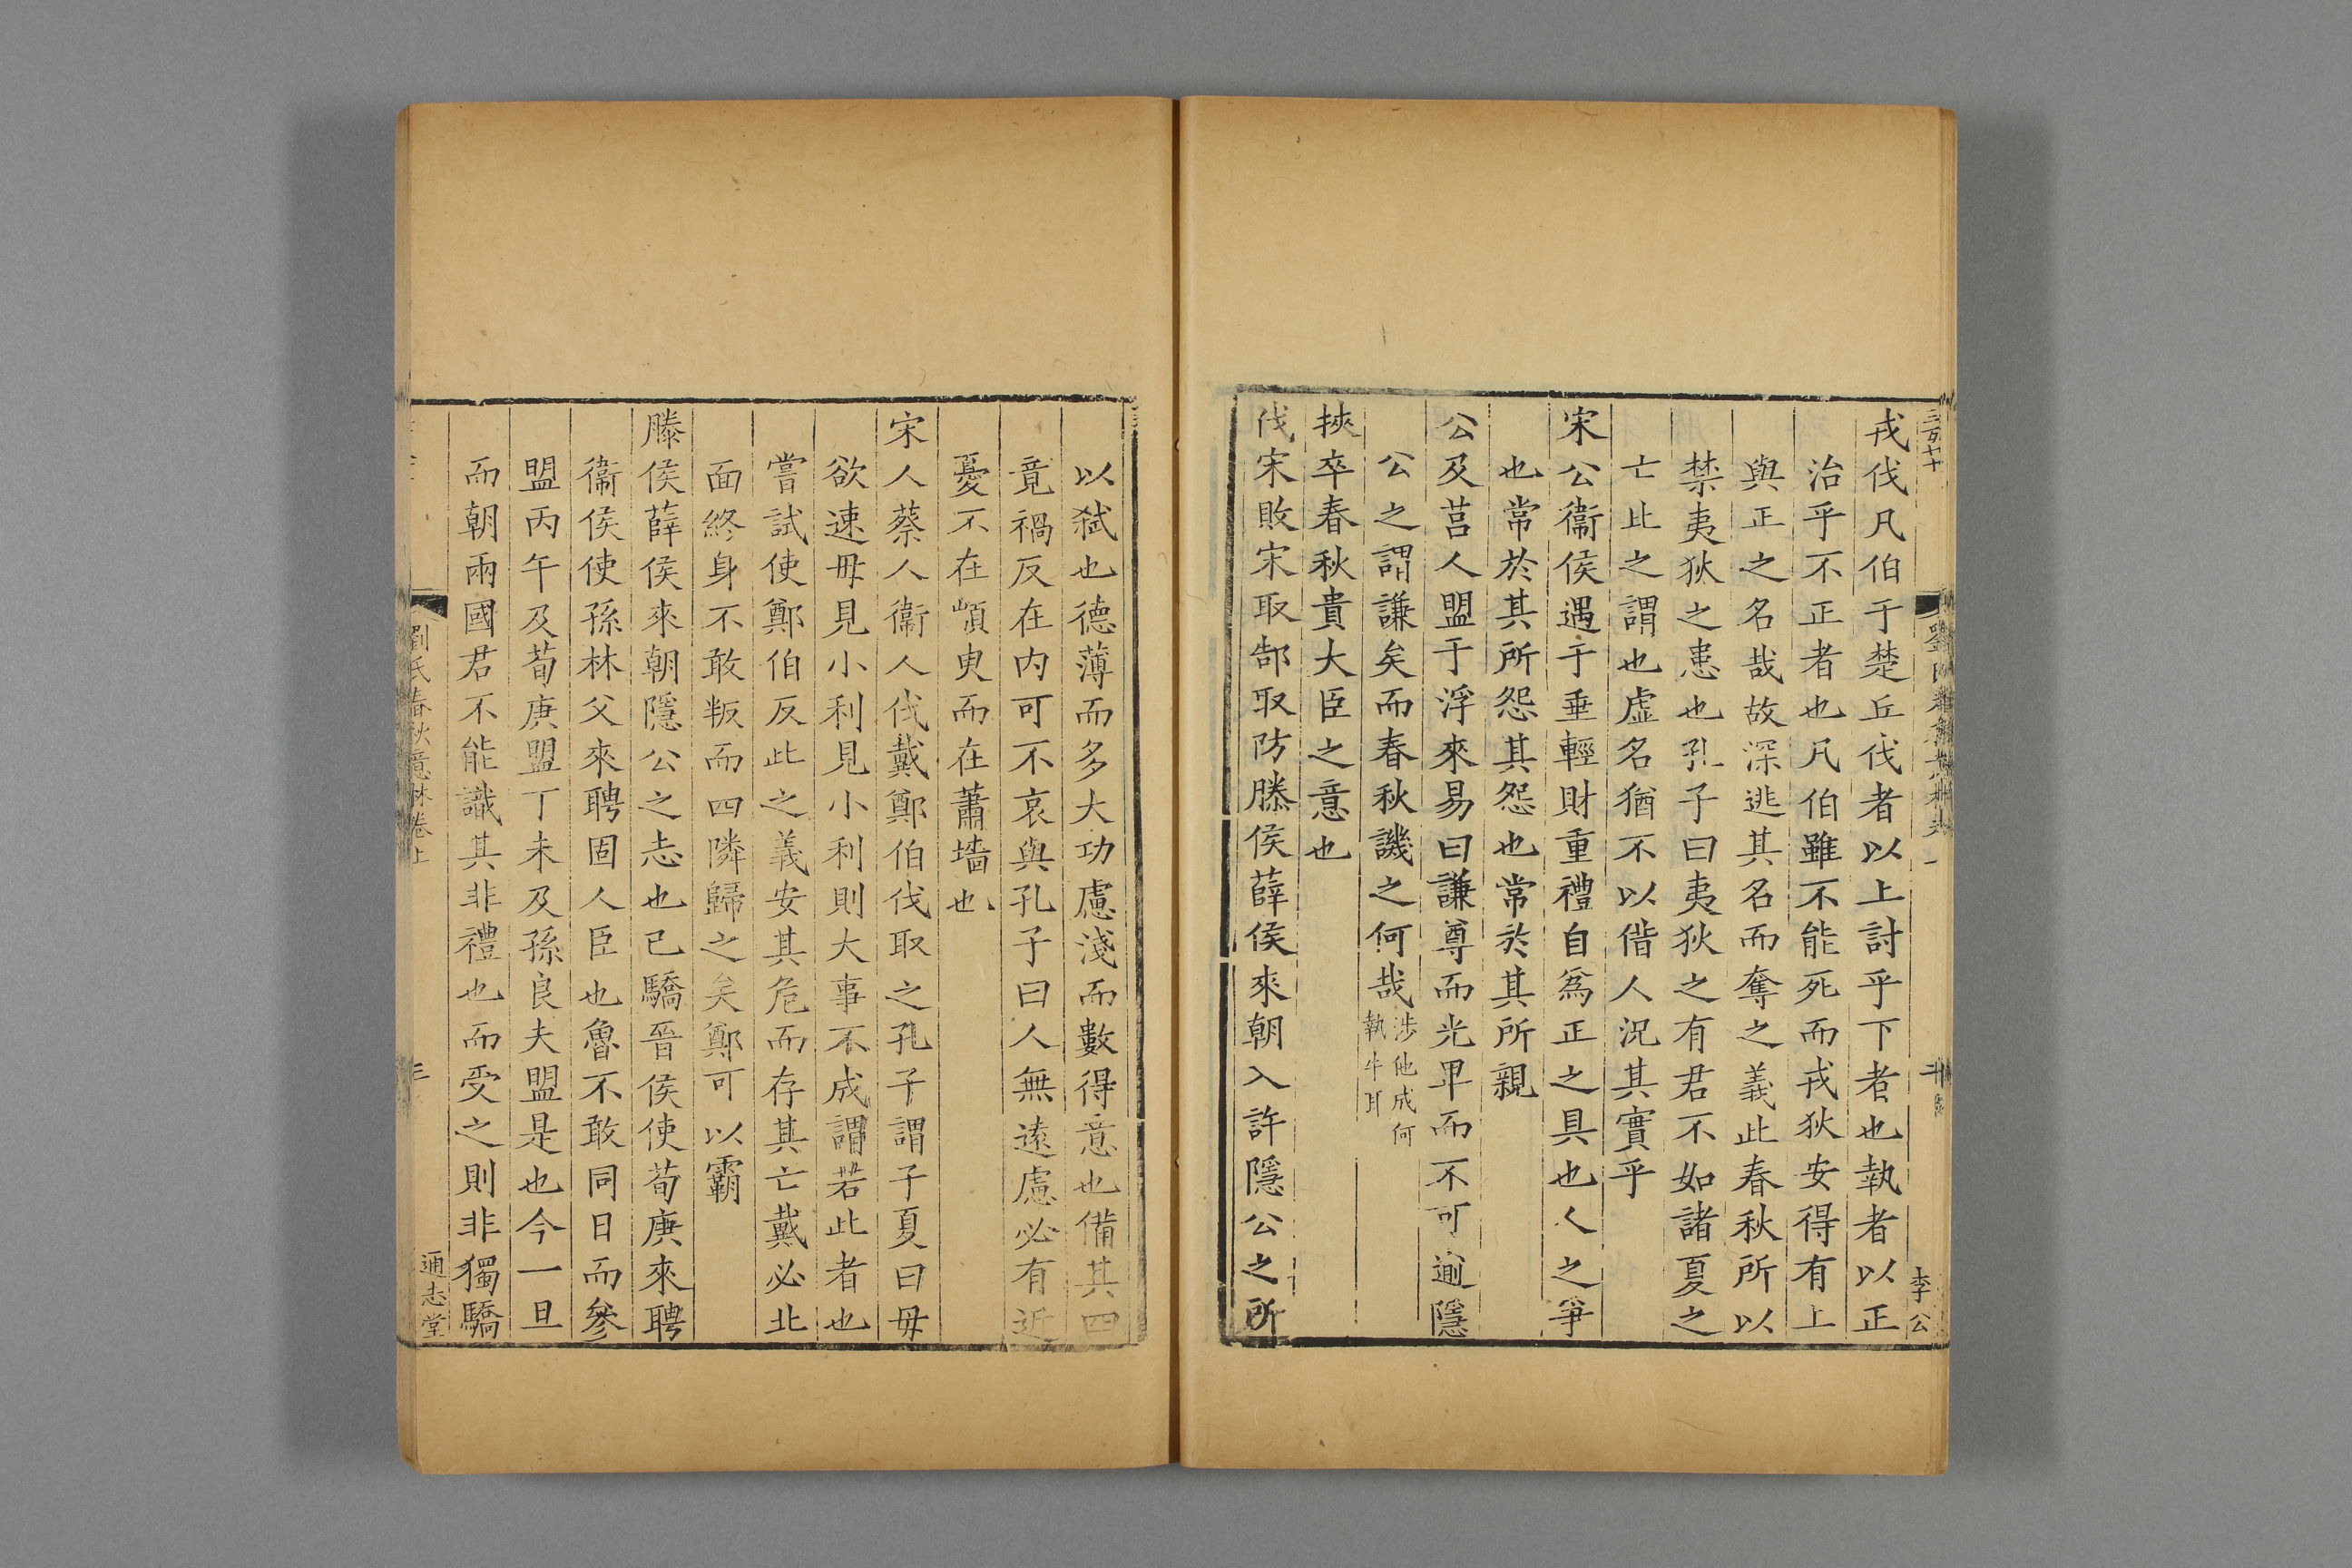 戎伐凡伯于楚丘伐者以上討乎下者也執者以正
治乎不正者也凡伯雖不能死而戎狄安得有上
與正之名哉故深逃其名而奪之義此春秋所以
禁夷狄之患也孔子曰夷狄之有君不如諸夏之
亡此之謂也虛名猶不以偕人況其實乎
宋公衞侯遇于垂輕財重禮自爲正之具也人之爭
也常於其所怨其怨也常於其所親
公及莒人盟于浮來易曰謙尊而光卑而不可逾隱
公之謂謙矣而春秋譏之何哉涉他成何
執牛耳
挾卒春秋貴大臣之意也
伐宋敗宋取郜取防滕侯薛侯來朝入許隱公之所
李公
以弑也德薄而多大功慮淺而數得意也備其四
竟禍反在内可不哀與孔子曰人無遠慮必有近
憂不在顓臾而在蕭墻也
宋人蔡人衞人伐戴鄭伯伐取之孔子謂子夏曰毋
欲速毋見小利見小利則大事不成謂若此者也
嘗試使鄭伯反此之義安其危而存其亡戴必北
面終身不敢叛而四隣歸之矣鄭可以霸
滕侯薛侯來朝隱公之志也已驕晉侯使荀庚來聘
衞侯使孫林父來聘固人臣也魯不敢同日而參
盟丙午及荀庚盟丁未及孫良夫盟是也今一旦
而朝兩國君不能識其非禮也而受之則非獨驕
劉氏春秋意林卷上
三
通志堂